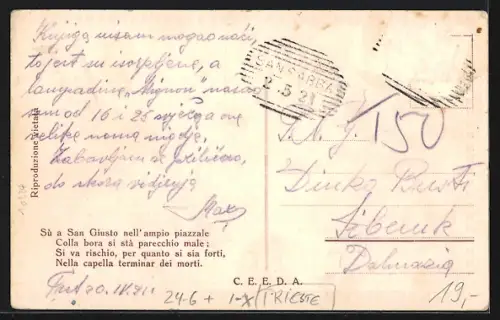 Knjigu nisam mogao naći,
to jest su iscrpljene, a
"Mignon" nasao
sam od 16 i 25 ove
velike nema nigdje.
Zabavljam se prilično,
do skora vidjenja
Max
Riproduzione vietata
Sù a San Giusto nell'ampio piazzale
Colla bora si stà parecchio male;
Si va rischio, per quanto si sia forti,
Nella capella terminar dei morti.
C. E. E. D. A.
SAN SABBA
2. 5. 21
150
Dinko
Šibenik
Dalmazia
19,-
246 + 1-X TRIESTE